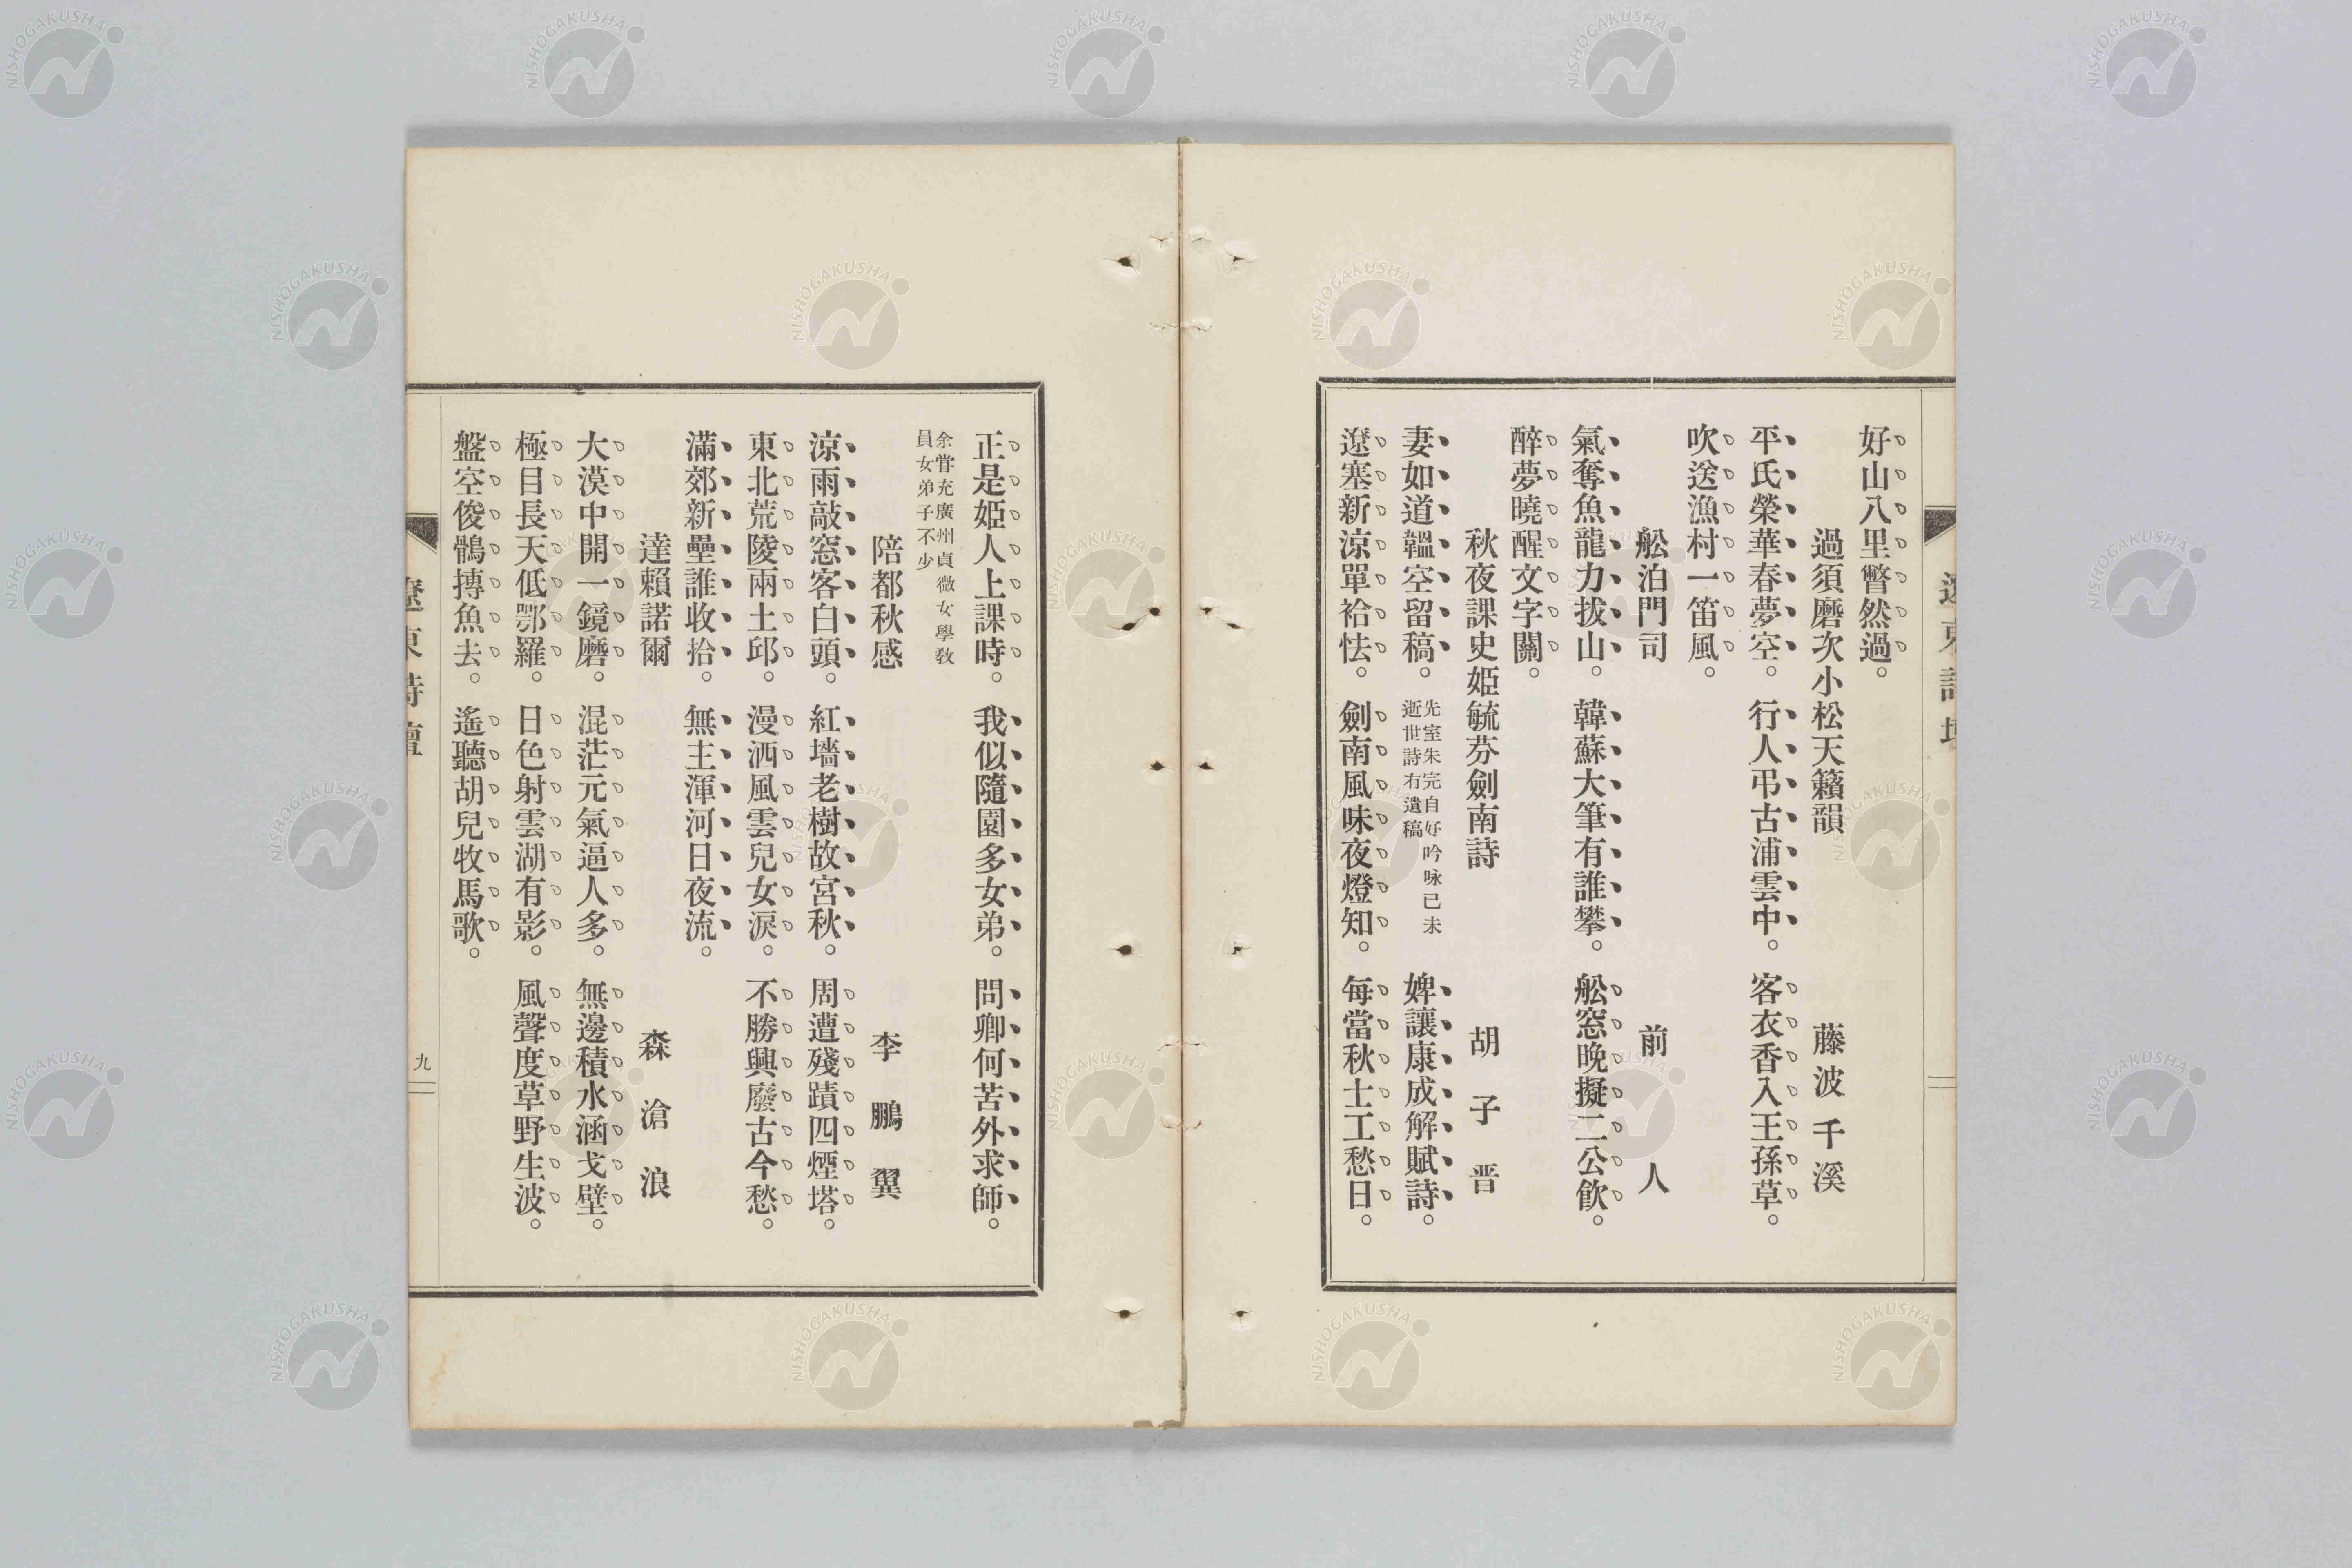 好山八里瞥然過。
過須磨次小松天籟韻　藤波千溪
平氏榮華春夢空。行人弔古浦雲中。客衣香入王孫草。
吹送漁村一笛風。
舩泊門司　前人
氣奪魚龍力拔山。韓蘇大筆有誰攀。舩窓晩擬二公飮。
醉夢曉醒文字關。
秋夜課史姫毓芬劍南詩　胡子晋
妻如道韞空留稿。先室朱完自好吟咏已未逝世詩有遺稿 婢讓康成解賦詩。
遼塞新凉單袷怯。劍南風味夜燈知。每當秋士工愁日。
正是姫人上課時。我似隨園多女弟。問卿何苦外求師。
余甞充廣州貞微女學敎
員女弟子不少
陪都秋感　李鵬翼
凉雨敲窓客白頭。紅墻老樹故宮秋。周遭殘蹟四煙塔。
東北荒陵兩土邱。漫洒風雲兒女淚。不勝興廢古今愁。
滿郊新壘誰收拾。無主渾河日夜流。
達賴諾爾　森滄浪
大漠中開一鏡磨。混茫元氣逼人多。無邊積水涵戈壁。
極目長天低鄂羅。日色射雲湖有影。風聲度草野生波。
盤空俊鶻摶魚去。遙聽胡兒牧馬歌。
遼東詩壇
九
NISHOGAKUSHA